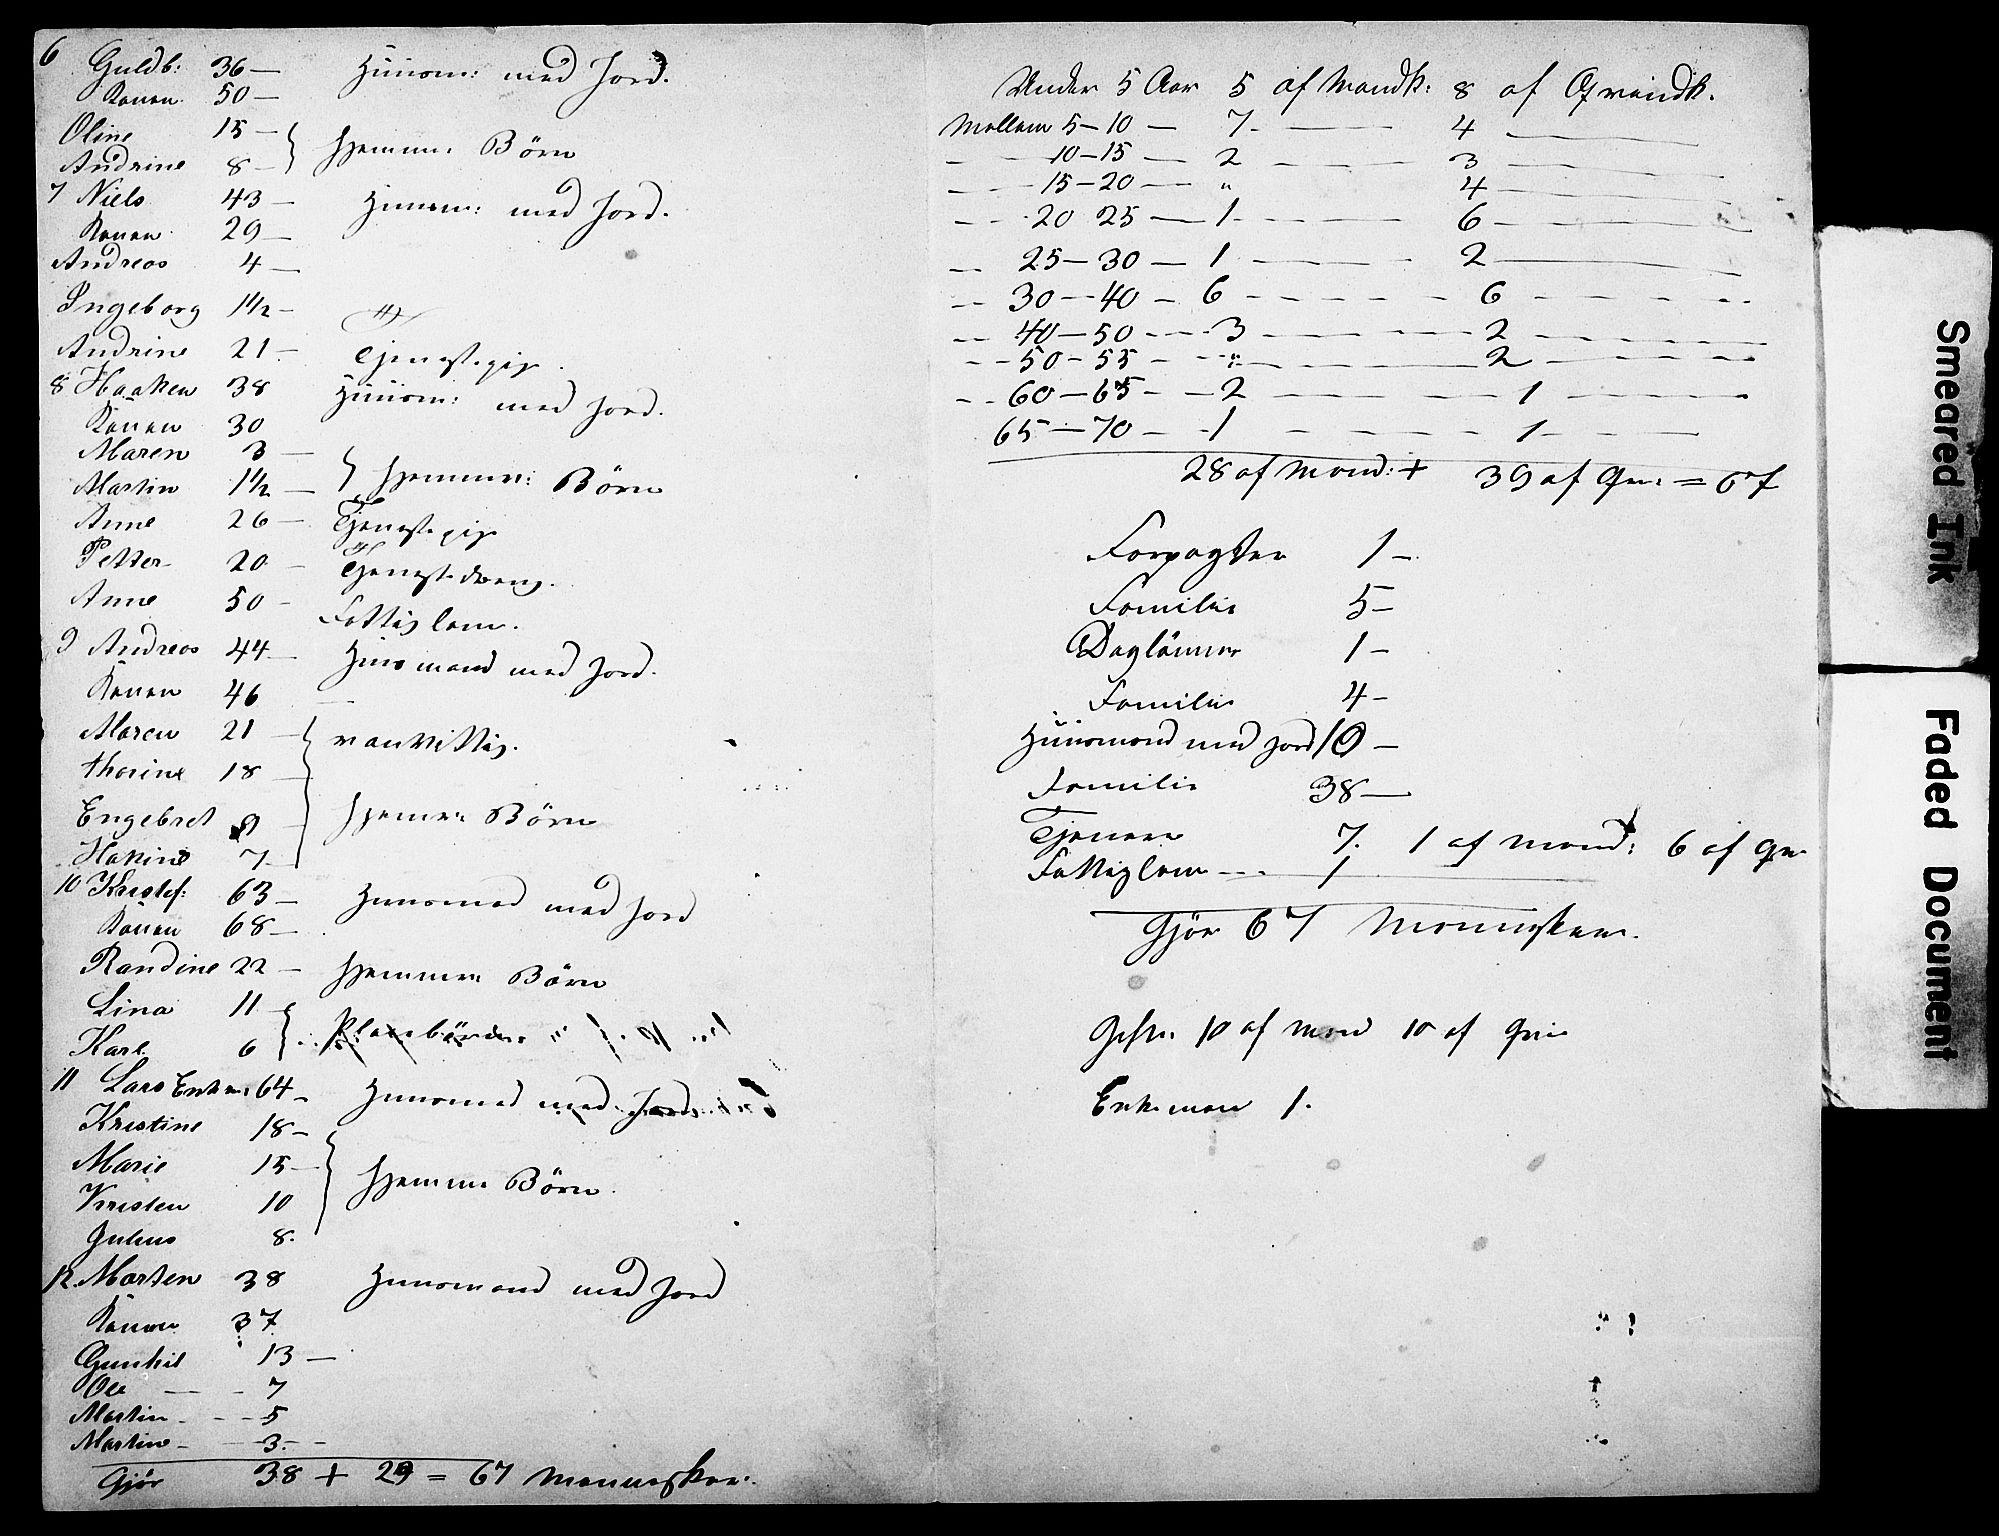 6 Guldb: 36 — Huusm: med Jord.
Konen 50 —
Oline 15 —
Andrine 8 — hjemme Börn
7 Niels 43 — Huusm: med Jord.
Konen 29 —
Andreas 4 —
Ingeborg 1 1/2 —
Andrine 21 — Tjenestepig
8 Haaken 38 Huusm: med Jord.
Konen 30
Maren 3 —
Martin 1 1/2 — hjemme: Börn
Anne 26 — Tjenestepig
Petter 20 — Tjenestedreng.
Anne 50 - Fattiglem.
9 Andreas 44 — Huusmand med Jord.
Konen 46 —
Maren 21 — vanvittig.
Thorine 18 —
Engebret 9 — hjemm: Börn
Hanine 7 —
10 Kristof: 63 — Huusmad med Jord
Konen 68 —
Randine 22 — hjemme: Börn
Lina 11 -
Karl 6 Pleiebörn
11 Lars Enkem: 64 — Huusmad med Jord
Kristine 18 —
Marie 15 — hjemme Börn.
Kristen 10
Julius 8.
12. Morten 38 Huusmand med Jord
Konen 37
Gunhil 13 —
Ole — - 7
Martin - - - 5
Martine - — 3. - -
Gjör 38 + 29 = 67 Mennesker.
Under 5 Aar 5 af Mandk: 8 af Qvindk.
Mellem 5-10 — 7. — 4 —
— 10-15 — 2 — 3 —
— 15-20 — " 4 —
— 20 25 — 1 — 6 —
— 25-30 — 1 — 2 —
— 30-40 - 6 - - - - 6 - - -
— 40-50 - - - 3 — 2 —
- - 50-55 - - " — 2 —
- - 60-65 - - 2 — 1 —
65-70 - - 1 — 1 —
28 af Mand: + 39 af Qv: = 67
Forpagter 1 —
Familie 5 —
Daglönner 1 —
Familie 4 —
Huusmænd med Jord 10 —
Familie 38 —
Tjenere 7. 1 af Mand: 6 af Qv
Fattiglem - - - 1
Gjör 67 Mennesker.
Gifte 10 af Mand 10 af Qvi
Enkeman 1.
Smeared Ink
Faded Document